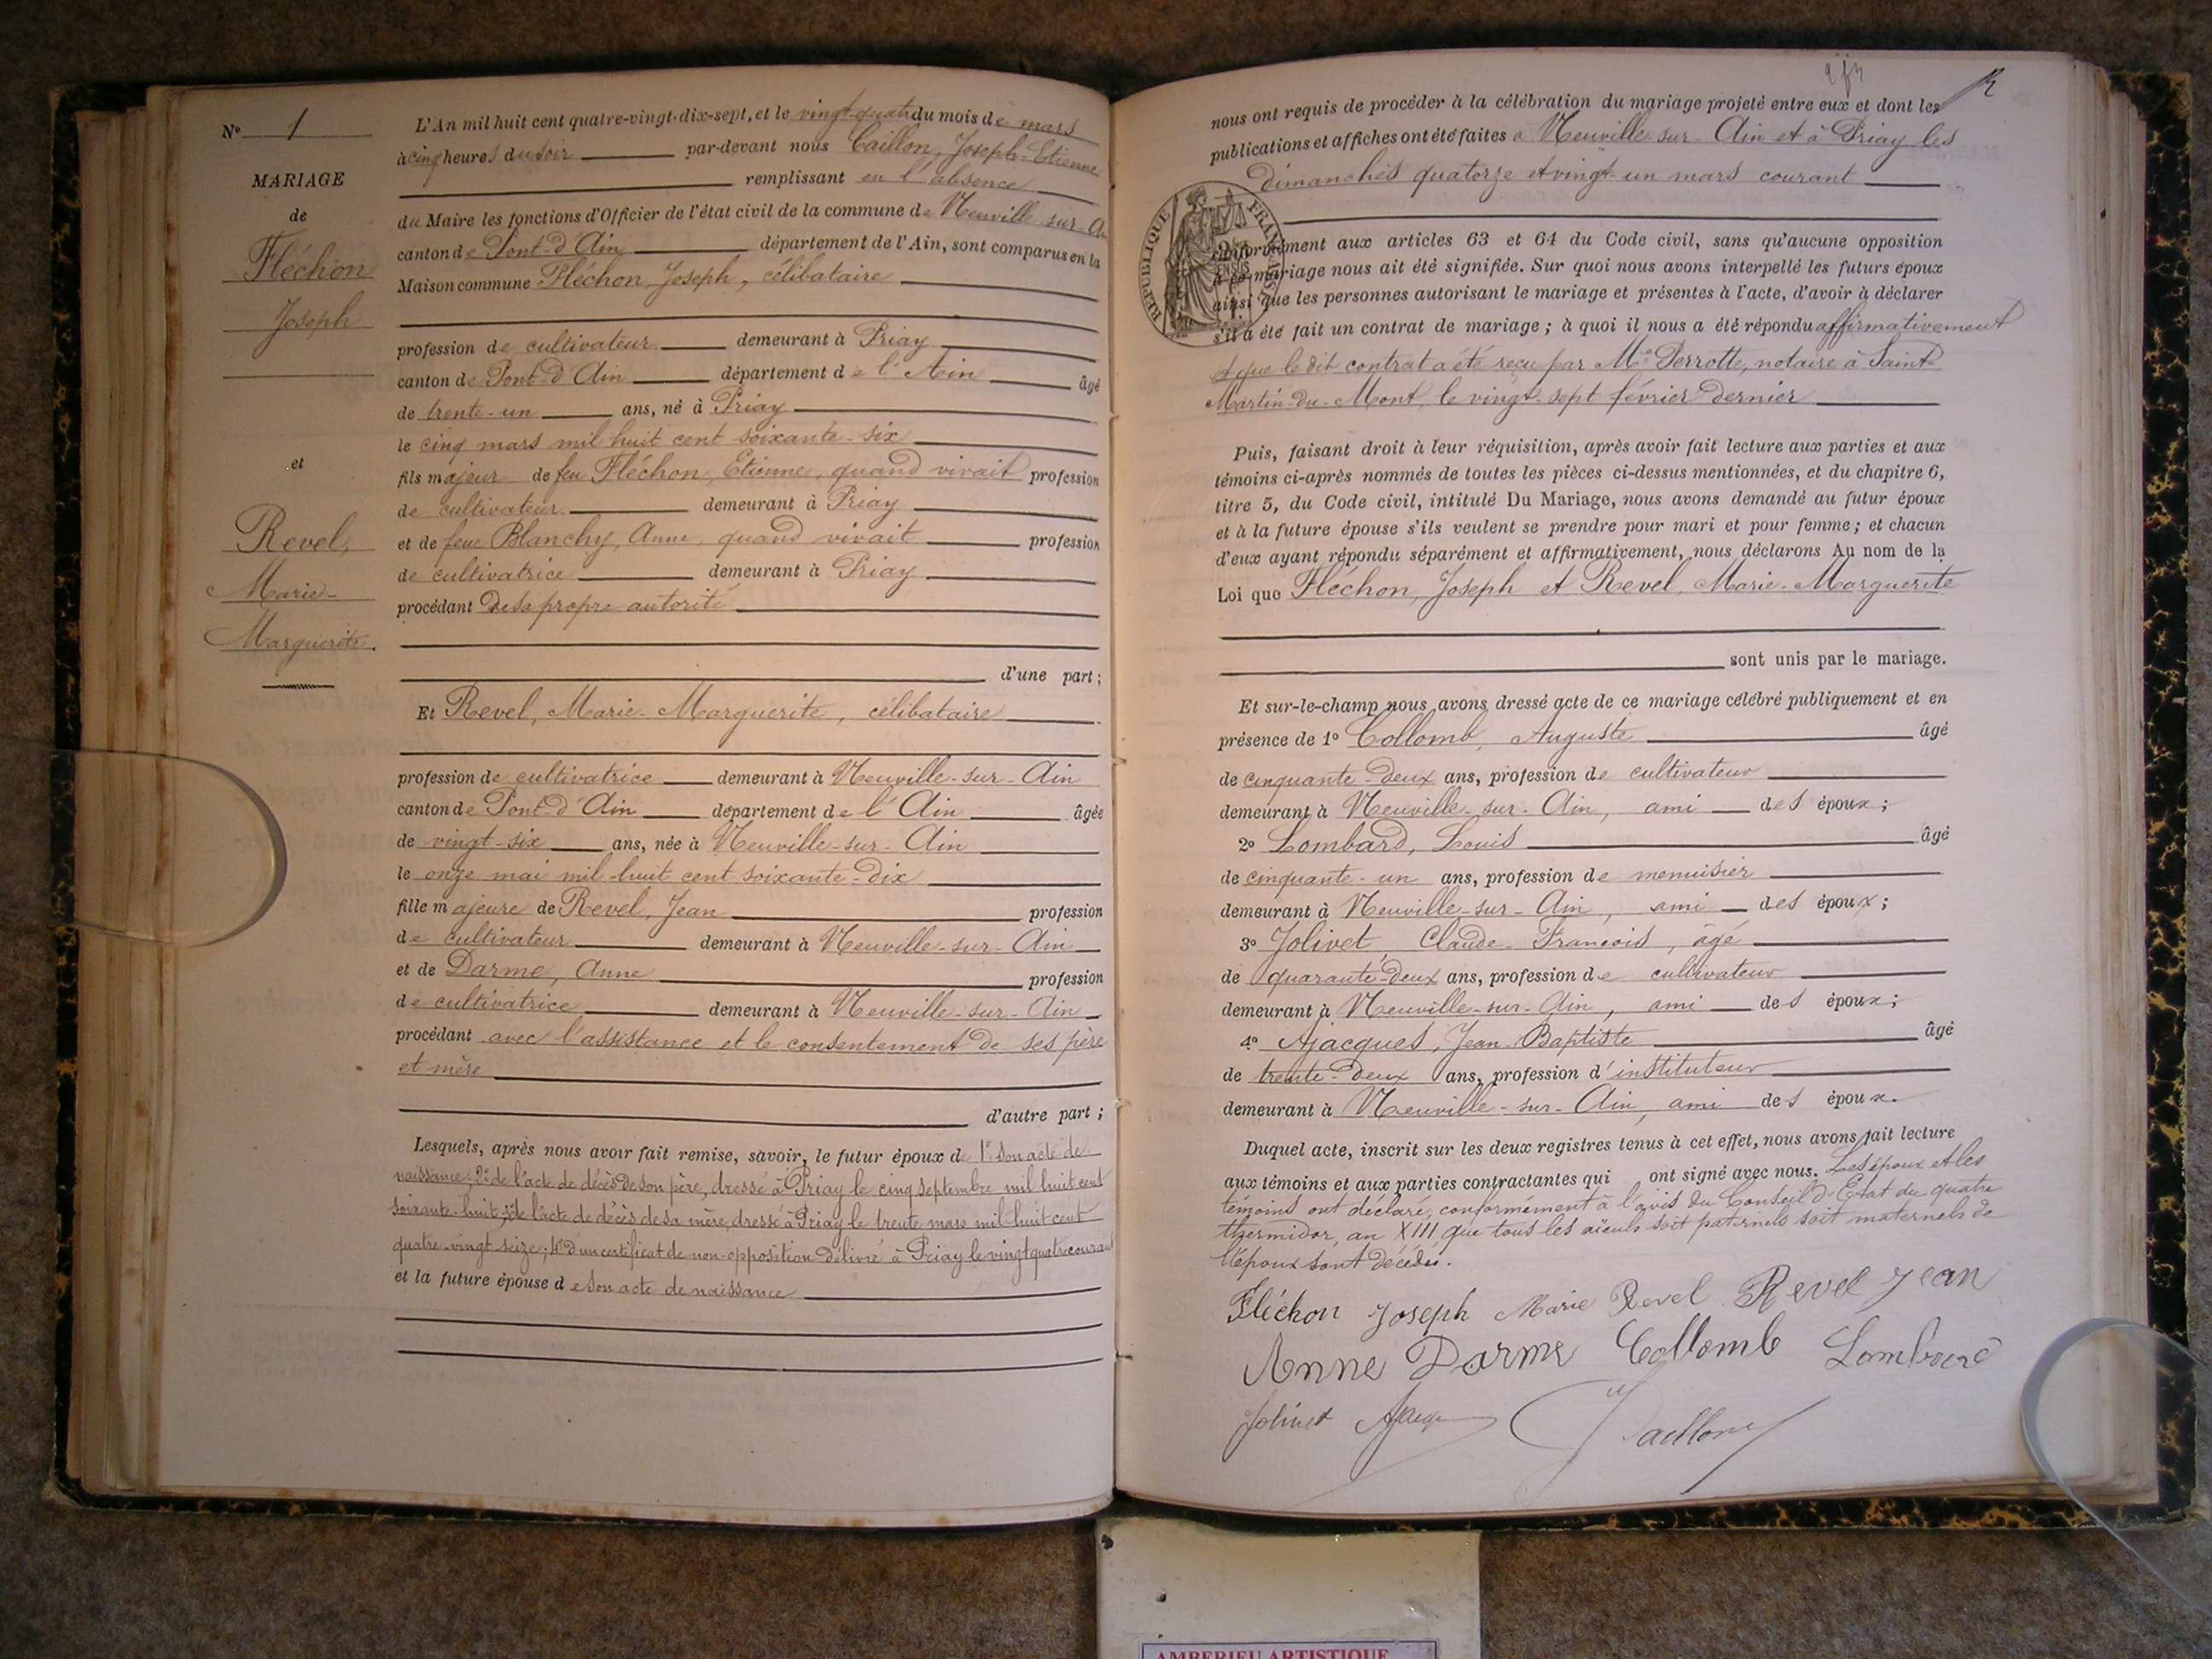 N° 1
MARIAGE
de
Fléchon
Joseph
et
Revel,
Marie-
Marguerite.
L'An mil huit cent quatre-vingt-dix-sept, et le vingt-quatre du mois de mars
à cinq heures du soir par-devant nous Caillon, Joseph-Etienne
remplissant en l'absence
du Maire les fonctions d'Officier de l'état civil de la commune de Neuville-sur-Ain
canton de Pont-d'Ain département de l'Ain, sont comparus en la
Maison commune Fléchon, Joseph, célibataire
profession de cultivateur demeurant à Priay
canton de Pont-d'Ain département de l'Ain âgé
de trente-un ans, né à Priay
le cinq mars mil huit cent soixante-six
fils majeur de feu Fléchon, Etienne, quand vivait profession
de cultivateur demeurant à Priay
et de feue Blanchy, Anne, quand vivait profession
de cultivatrice demeurant à Priay
procédant de sa propre autorité
d'une part ;
Et Revel, Marie-Marguerite, célibataire
profession de cultivatrice demeurant à Neuville-sur-Ain
canton de Pont-d'Ain département de l'Ain âgée
de vingt-six ans, née à Neuville-sur-Ain
le onze mai mil huit cent soixante-dix
fille majeure de Revel, Jean profession
de cultivateur demeurant à Neuville-sur-Ain
et de Darme, Anne profession
de cultivatrice demeurant à Neuville-sur-Ain
procédant avec l'assistance et le consentement de ses père
et mère
d'autre part ;
Lesquels, après nous avoir fait remise, savoir, le futur époux de 1° son acte de
naissance; 2° de l'acte de décès de son père, dressé à Priay le cinq septembre mil huit cent
soixante-huit; 3° de l'acte de décès de sa mère, dressé à Priay le trente mars mil huit cent
quatre-vingt seize; 4° d'un certificat de non-opposition délivré à Priay le vingt quatre courant
et la future épouse de son acte de naissance
nous ont requis de procéder à la célébration du mariage projeté entre eux et dont les
publications et affiches ont été faites à Neuville-sur-Ain et à Priay les
dimanches quatorze et vingt-un mars courant
REPUBLIQUE FRANÇAISE
conformément aux articles 63 et 64 du Code civil, sans qu'aucune opposition
à ce mariage nous ait été signifiée. Sur quoi nous avons interpellé les futurs époux
ainsi que les personnes autorisant le mariage et présentes à l'acte, d'avoir à déclarer
s'il a été fait un contrat de mariage ; à quoi il nous a été répondu affirmativement
et que le dit contrat a été reçu par Me Perrotte, notaire à Saint-
Martin-du-Mont, le vingt-sept février dernier
Puis, faisant droit à leur réquisition, après avoir fait lecture aux parties et aux
témoins ci-après nommés de toutes les pièces ci-dessus mentionnées, et du chapitre 6,
titre 5, du Code civil, intitulé Du Mariage, nous avons demandé au futur époux
et à la future épouse s'ils veulent se prendre pour mari et pour femme ; et chacun
d'eux ayant répondu séparément et affirmativement, nous déclarons Au nom de la
Loi que Fléchon, Joseph et Revel, Marie-Marguerite
sont unis par le mariage.
Et sur-le-champ nous avons dressé acte de ce mariage célébré publiquement et en
présence de 1° Collomb, Auguste âgé
de cinquante-deux ans, profession de cultivateur
demeurant à Neuville-sur-Ain, ami des époux ;
2° Lombard, Louis âgé
de cinquante-un ans, profession de menuisier
demeurant à Neuville-sur-Ain, ami des époux ;
3° Jolivet, Claude-François, âgé
de quarante-deux ans, profession de cultivateur
demeurant à Neuville-sur-Ain, ami des époux ;
4° Ajacques, Jean-Baptiste âgé
de trente-deux ans, profession d'instituteur
demeurant à Neuville-sur-Ain, ami des époux.
Duquel acte, inscrit sur les deux registres tenus à cet effet, nous avons fait lecture
aux témoins et aux parties contractantes qui ont signé avec nous. Les époux et les
témoins ont déclaré, conformément à l'avis du Conseil d'Etat du quatre
thermidor, an XIII que tous les aïeuls soit paternels soit maternels de
l'époux sont décédés.
Fléchon Joseph Marie Revel Revel Jean
Anne Darme Collomb Lombard
Jolivet Ajacques Caillon
AMBERIEU ARTISTIQUE